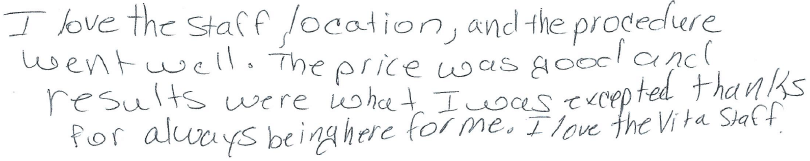 I love the staff, location, and the procedure
went well. The price was good and
results were what I was excepted thanks
for always being here for me. I love the Vita Staff.